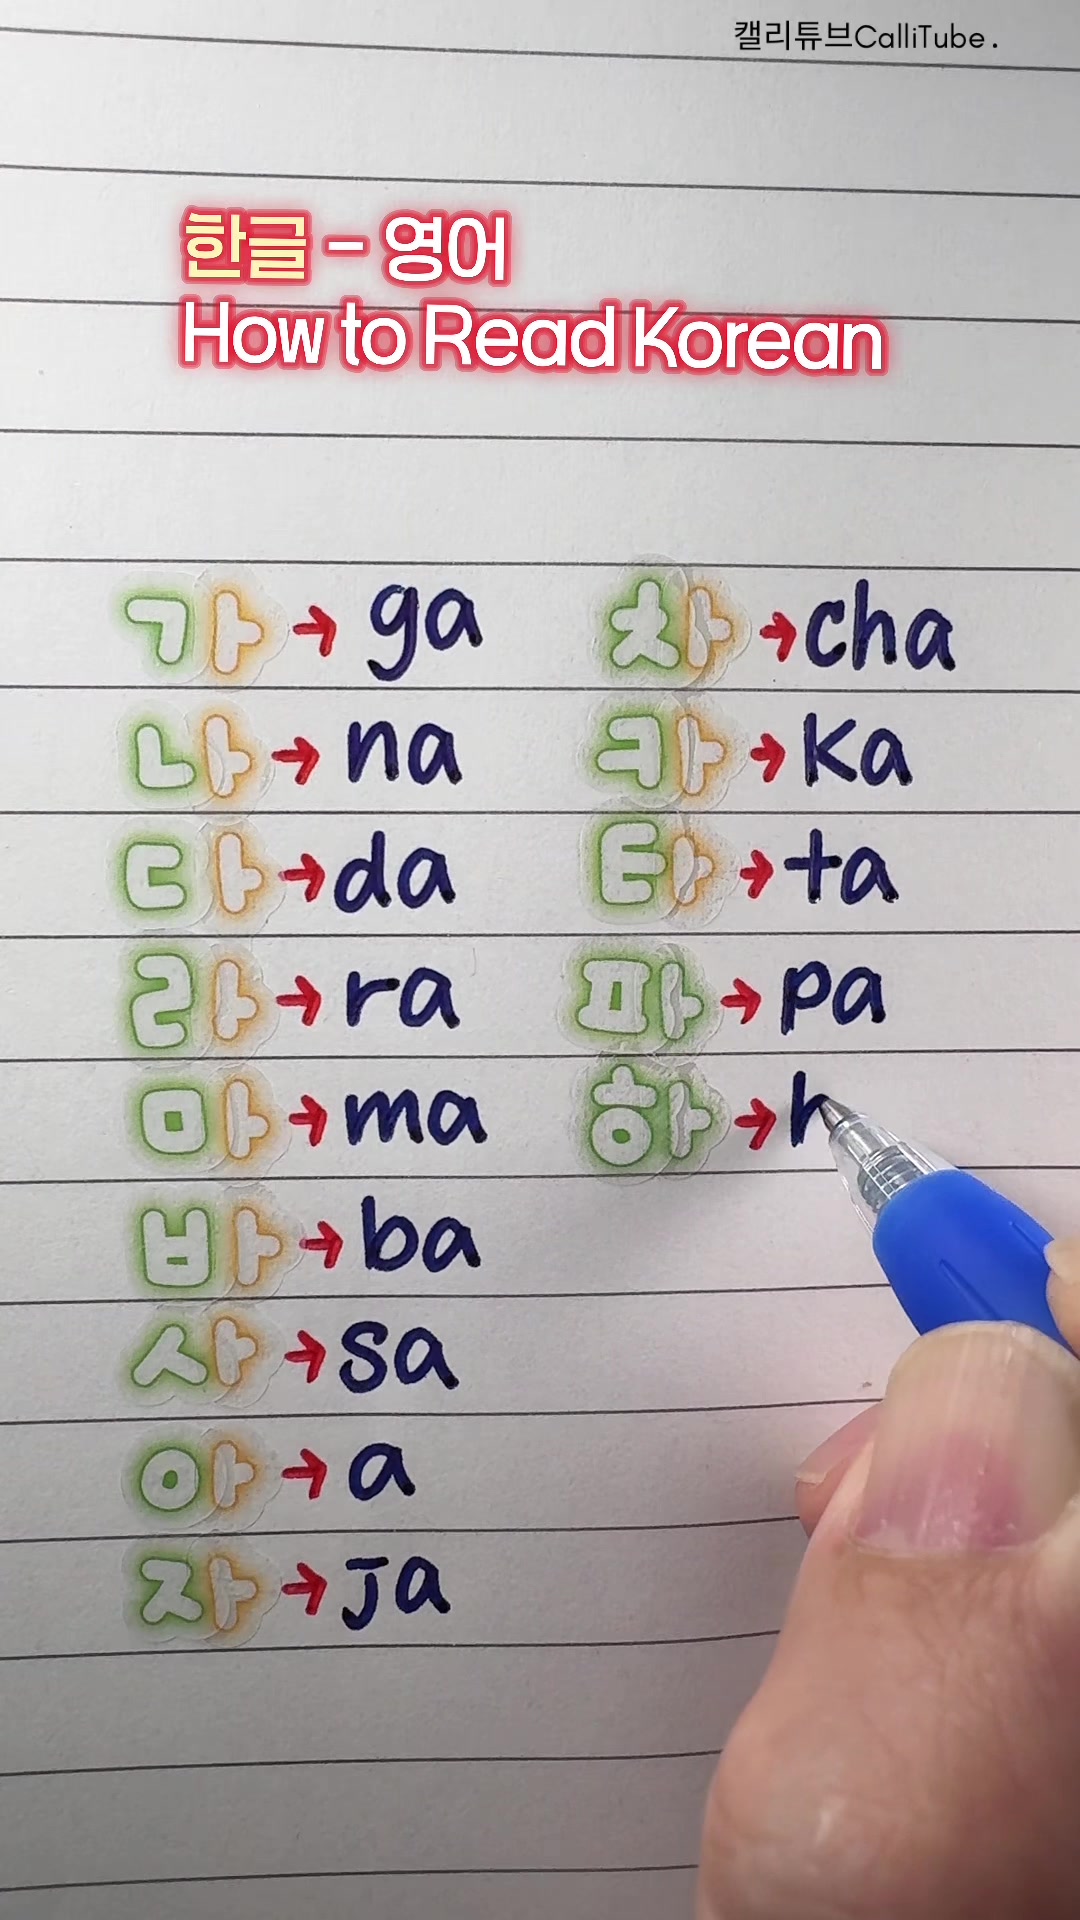 캘리튜브CalliTube.
한글 - 영어
How to Read Korean
가 → ga
나 → na
다 → da
라 → ra
마 → ma
바 → ba
사 → sa
아 → a
자 → ja
차 → cha
카 → ka
타 → ta
파 → pa
하 → h